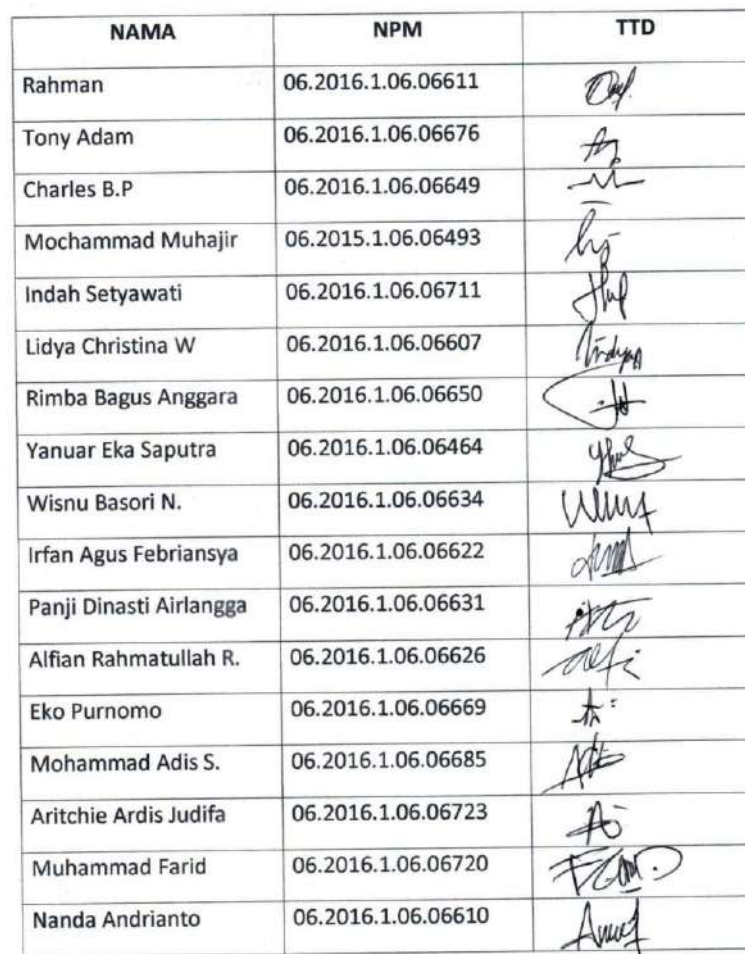 NAMA NPM TTD
Rahman 06.2016.1.06.06611
Tony Adam 06.2016.1.06.06676
Charles B.P 06.2016.1.06.06649
Mochammad Muhajir 06.2015.1.06.06493
Indah Setyawati 06.2016.1.06.06711
Lidya Christina W 06.2016.1.06.06607
Rimba Bagus Anggara 06.2016.1.06.06650
Yanuar Eka Saputra 06.2016.1.06.06464
Wisnu Basori N. 06.2016.1.06.06634
Irfan Agus Febriansya 06.2016.1.06.06622
Panji Dinasti Airlangga 06.2016.1.06.06631
Alfian Rahmatullah R. 06.2016.1.06.06626
Eko Purnomo 06.2016.1.06.06669
Mohammad Adis S. 06.2016.1.06.06685
Aritchie Ardis Judifa 06.2016.1.06.06723
Muhammad Farid 06.2016.1.06.06720
Nanda Andrianto 06.2016.1.06.06610